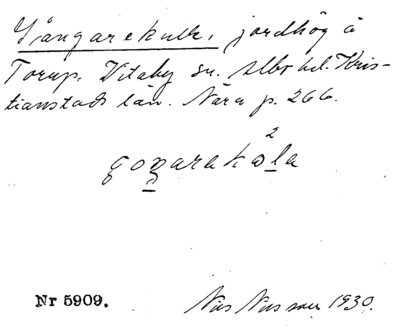 Gångarekulle, jordhög å
Torup. Vitaby sn. Albo hd. Kris-
tianstads län. Nära p. 266.
goŋarakωla
2
Nr 5909.
Nils 1930.